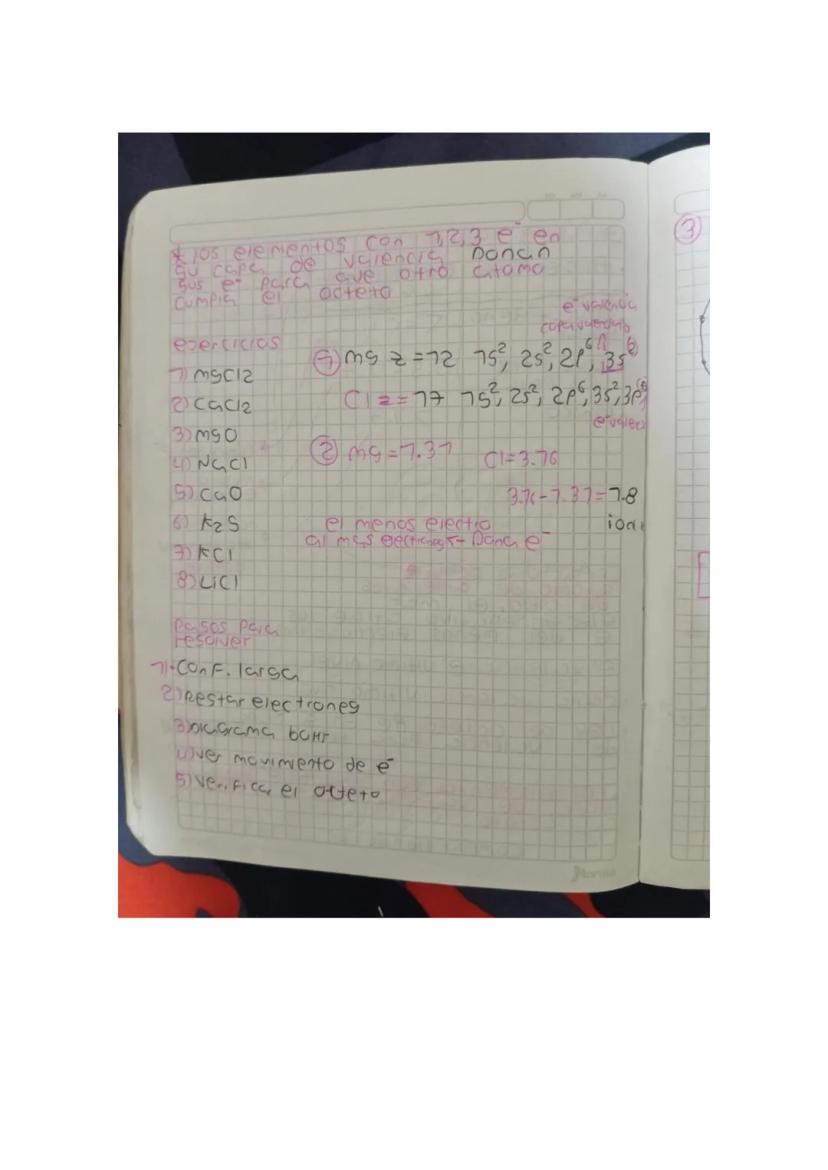 * los elementos con 1,2,3 e⁻ en
su capa de valencia Donan
sus e⁻ para que otro atomo
cumpla el octeto
e⁻ valencia
ejercicios
1) MgCl2
2) CaCl2
3) MgO
4) NaCl
5) CaO
6) K2S
7) KCl
8) LiCl
① Mg z=12 1s², 2s², 2p⁶, 3s²
Cl z=17 1s², 2s², 2p⁶, 3s², 3p⁵
② Mg=1.31 Cl=3.16
3.16-1.31=1.8
el menos electro
al mas electroneg Dona e⁻
pasos para
resolver
1) Conf. larga
2) Restar electrones
3) Diagrama bohr
4) ver movimiento de e⁻
5) Verificar el octeto
③
Norma